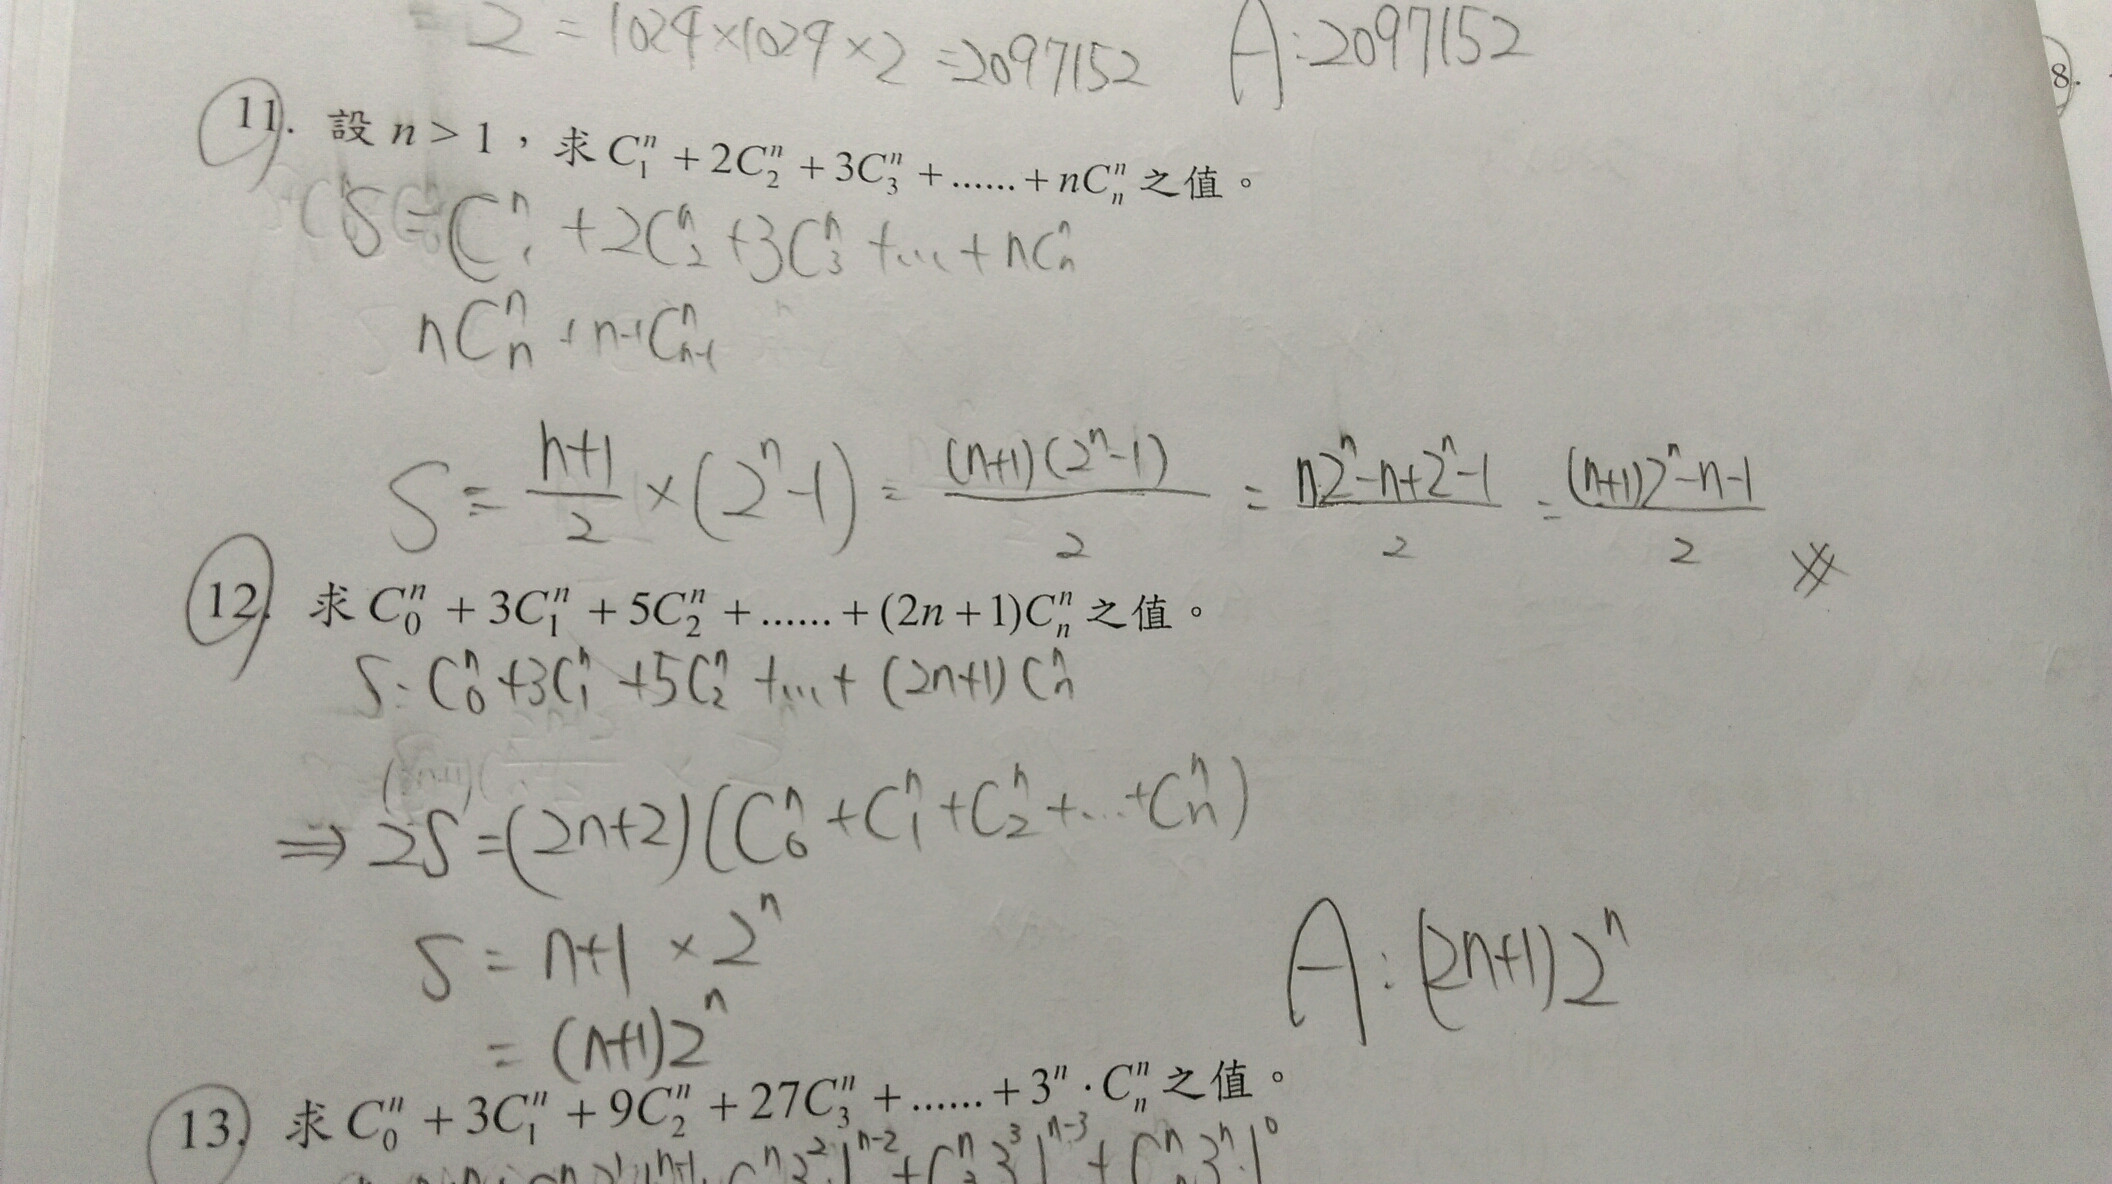 = 2 = 1024×1024×2 =2097152 A:2097152
11. 設 n > 1，求 C₁ⁿ + 2C₂ⁿ + 3C₃ⁿ + ...... + nCₙⁿ 之值。
8.
S = C₁ⁿ + 2C₂ⁿ + 3C₃ⁿ + ... + nCₙⁿ
nCₙⁿ + n-1Cₙ₋₁ⁿ
S = (n+1)/2 × (2ⁿ-1) = (n+1)(2ⁿ-1)/2 = n2ⁿ-n+2ⁿ-1/2 = (n+1)2ⁿ-n-1/2
12. 求 C₀ⁿ + 3C₁ⁿ + 5C₂ⁿ + ...... + (2n + 1)Cₙⁿ 之值。
S = C₀ⁿ + 3C₁ⁿ + 5C₂ⁿ + ... + (2n+1)Cₙⁿ
⇒ 2S = (2n+2)(C₀ⁿ + C₁ⁿ + C₂ⁿ + ... + Cₙⁿ)
S = n+1 × 2ⁿ
= (n+1)2ⁿ
A: (2n+1)2ⁿ
13. 求 C₀ⁿ + 3C₁ⁿ + 9C₂ⁿ + 27C₃ⁿ + ...... + 3ⁿ · Cₙⁿ 之值。
3²1ⁿ⁻² + C₃ⁿ3³1ⁿ⁻³ + Cₙⁿ3ⁿ·1⁰